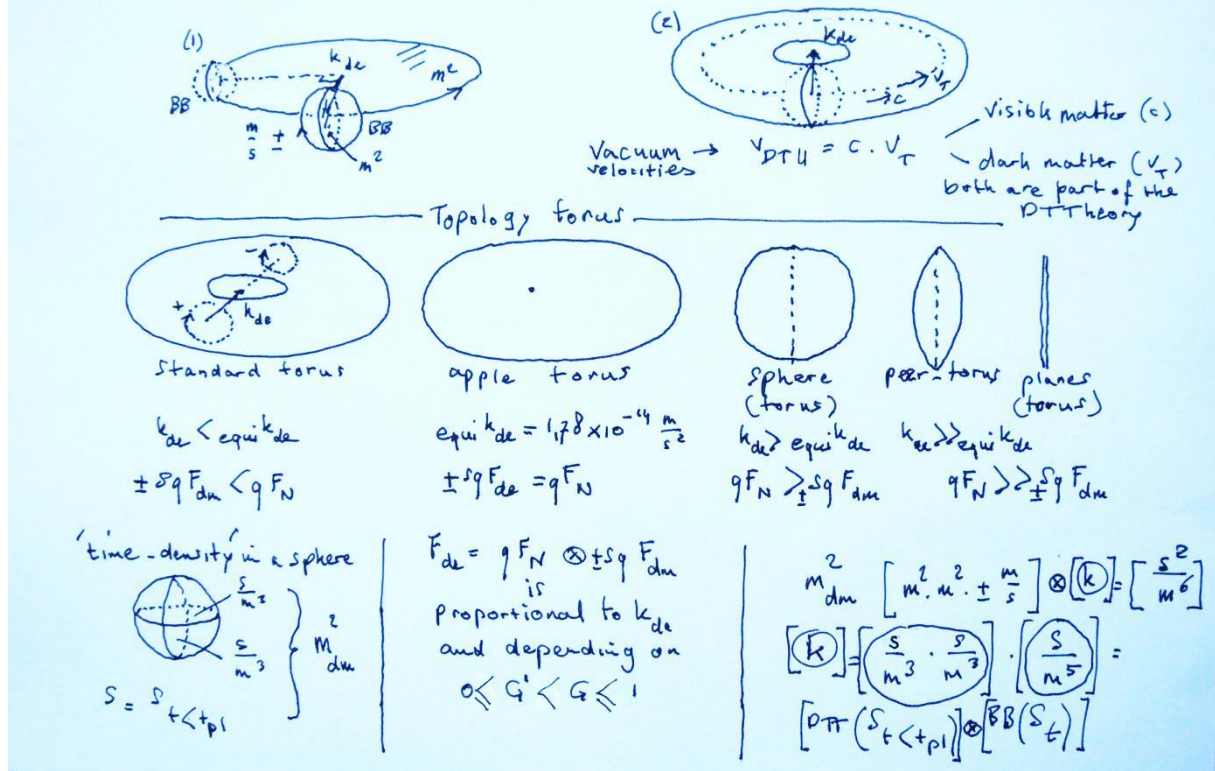 (1)
k_de
m²
BB
BB
m/s ±
m²
(2)
k_de
c
v_T
Vacuum velocities → v_DTU = c . v_T
visible matter (c)
dark matter (v_T)
both are part of the
DTTheory
Topology torus
- +
k_de
standard torus
apple torus
sphere
(torus)
torus
planes
(torus)
k_de < equi k_de
equi k_de = 1,78 × 10⁻¹⁴ m/s²
k_de > equi k_de
k_de >> equi k_de
± sq F_dm < q F_N
± sq F_de = q F_N
q F_N > ± sq F_dm
q F_N >> ± sq F_dm
'time-density' in a sphere
s/m³
s/m³
m²_dm
s = s_t<t_pl
F_de = q F_N ⊗ ± sq F_dm
is
proportional to k_de
and depending on
0 ≤ G' < G ≤ 1
m²_dm [m² . m² . ± m/s] ⊗ [k] = [s²/m⁶]
[k] = [s/m³ . s/m³] . [s/m⁵] =
[DTT (s_t<t_pl)] ⊗ [BB (s_t)]